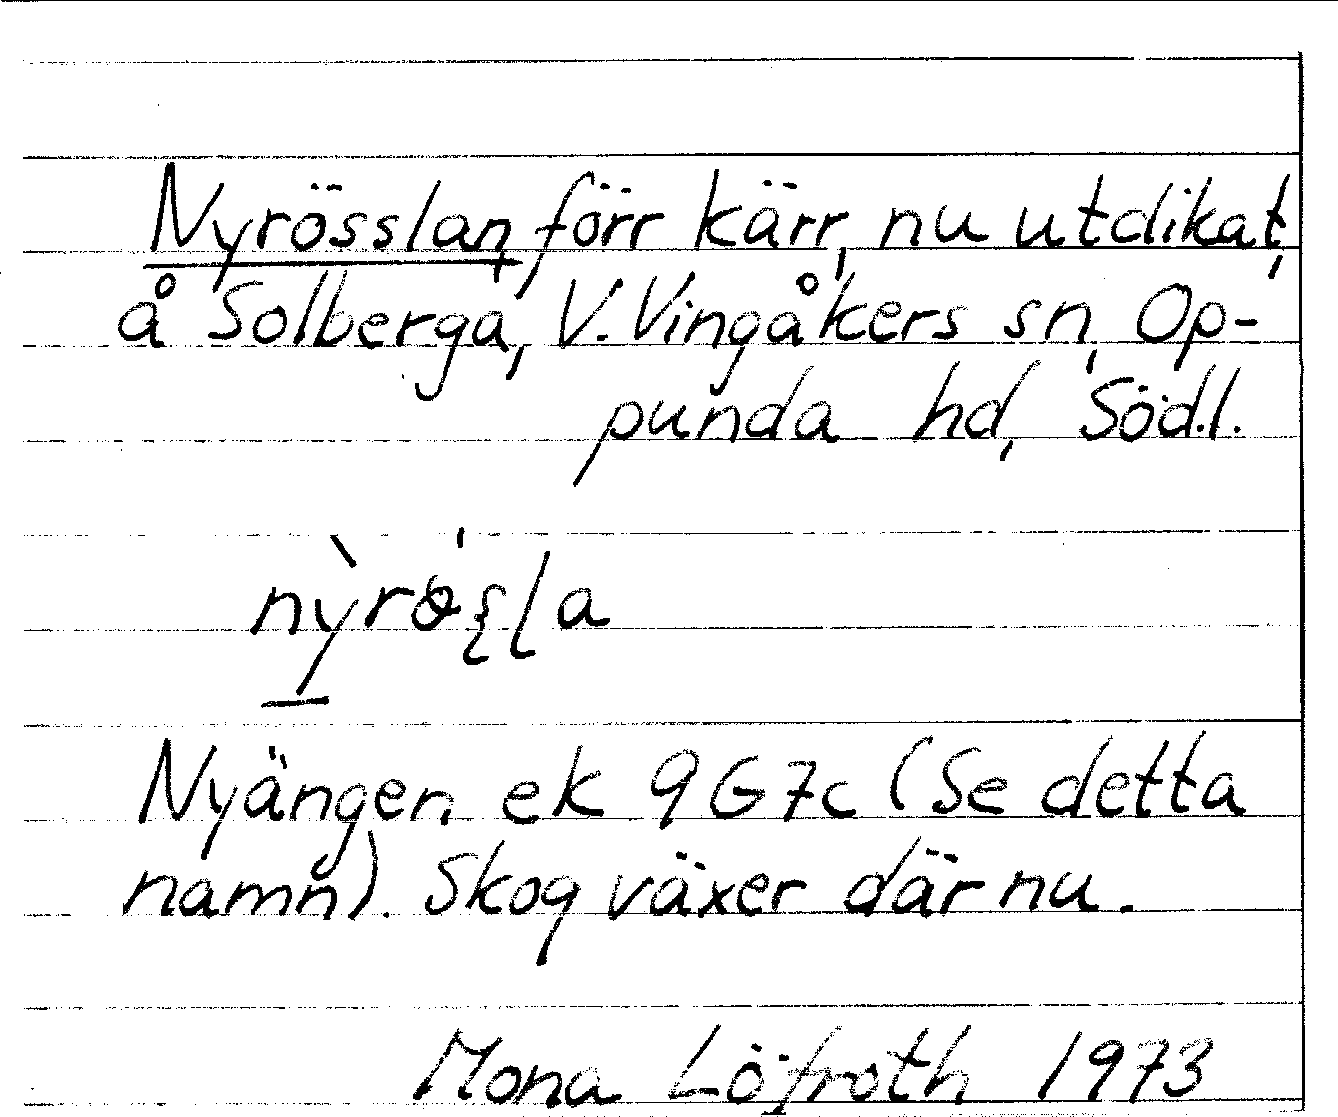 Nyrösslan, förr kärr, nu utdikat,
å Solberga, V. Vingåkers sn, Op-
punda hd, Söd.l.
Nyängen ek 9G7c (Se detta
namn). Skog växer där nu.
Mona Löfroth 1973